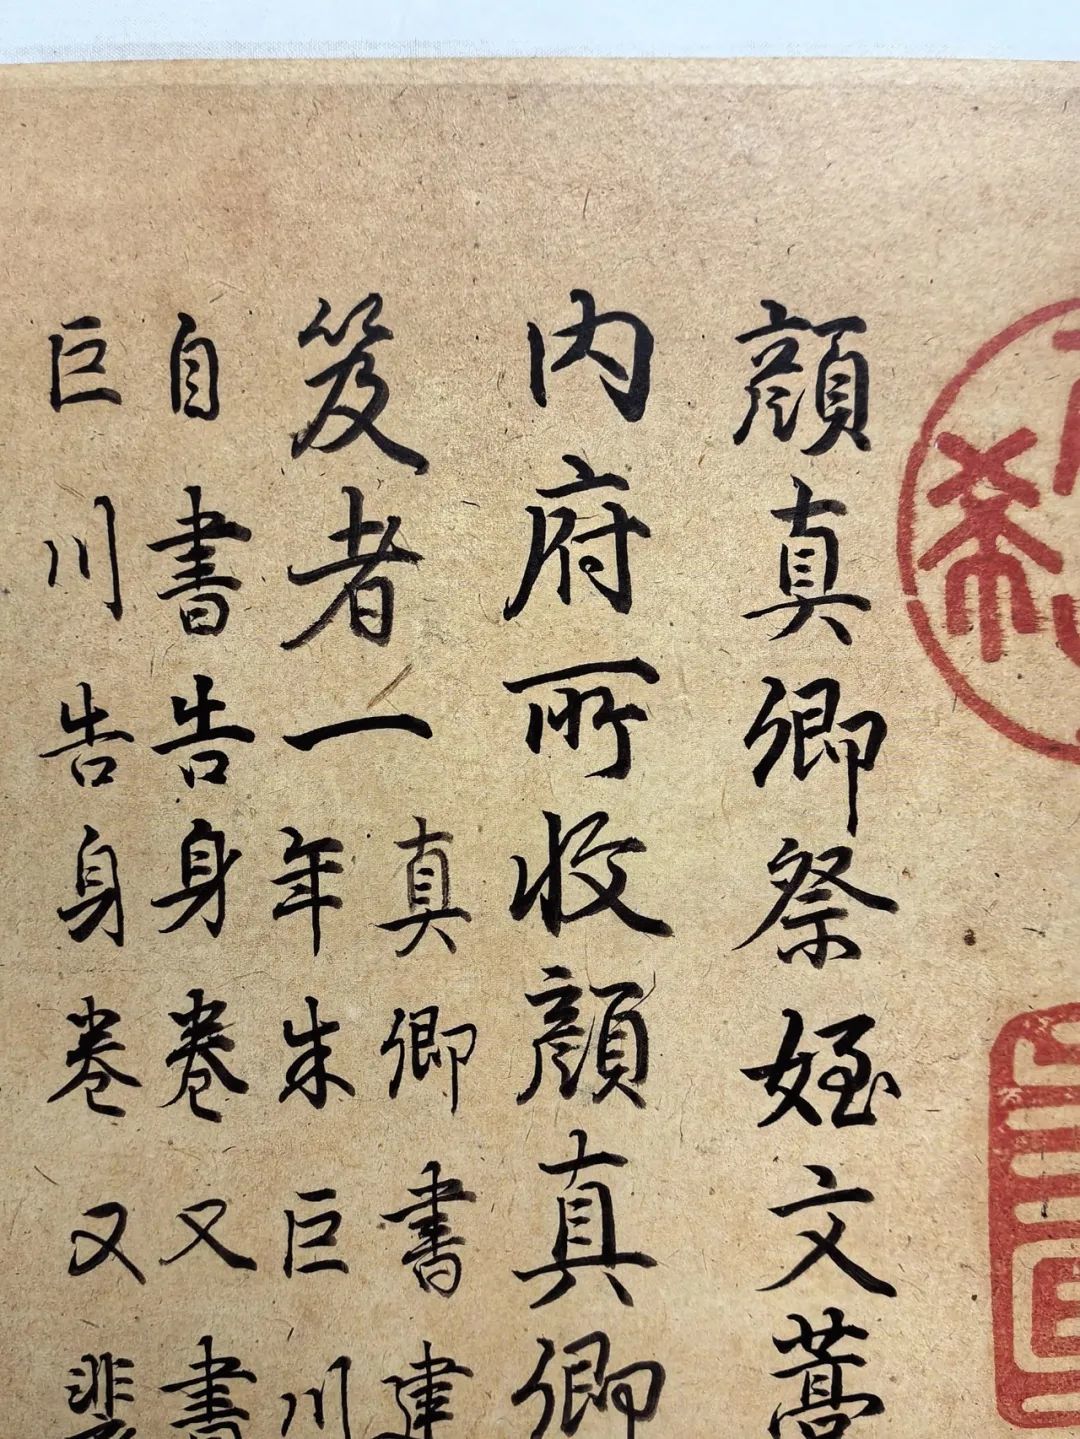 顔真卿祭姪文
内府所收顔真卿
笈者一
真卿書建
年朱巨川
自書告身卷又書
巨川告身卷又